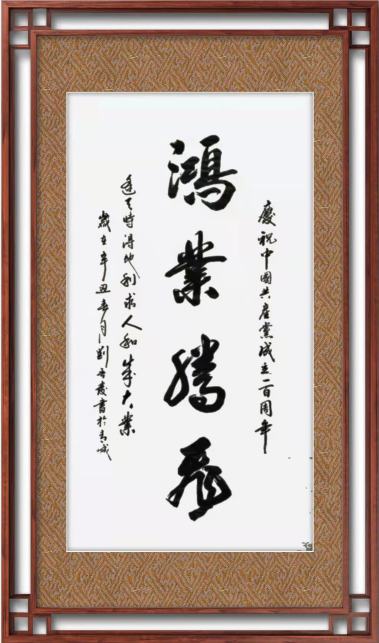 慶祝中國共産黨成立一百周年
鴻業騰飛
逢天時得地利求人和成大業
歲在辛丑春月劉書於青城